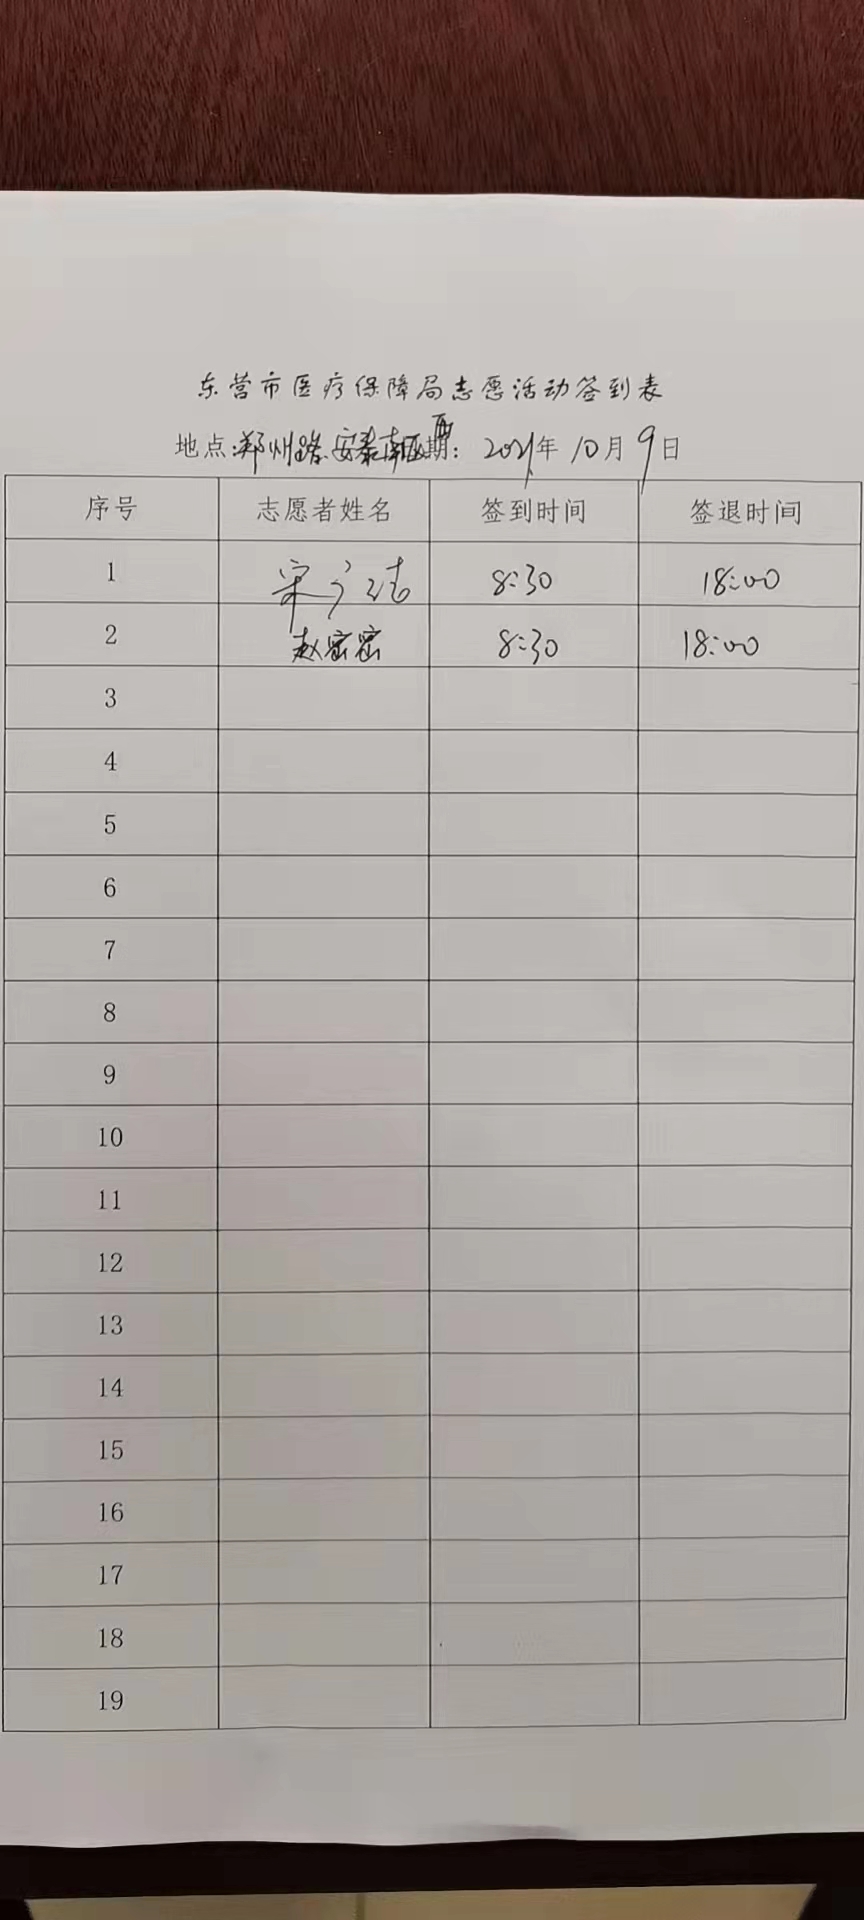 东营市医疗保障局志愿活动签到表
地点:郑州路 安泰南区西 期: 2021年10月9日
序号 志愿者姓名 签到时间 签退时间
1 宋 8:30 18:00
2 赵密密 8:30 18:00
3
4
5
6
7
8
9
10
11
12
13
14
15
16
17
18
19